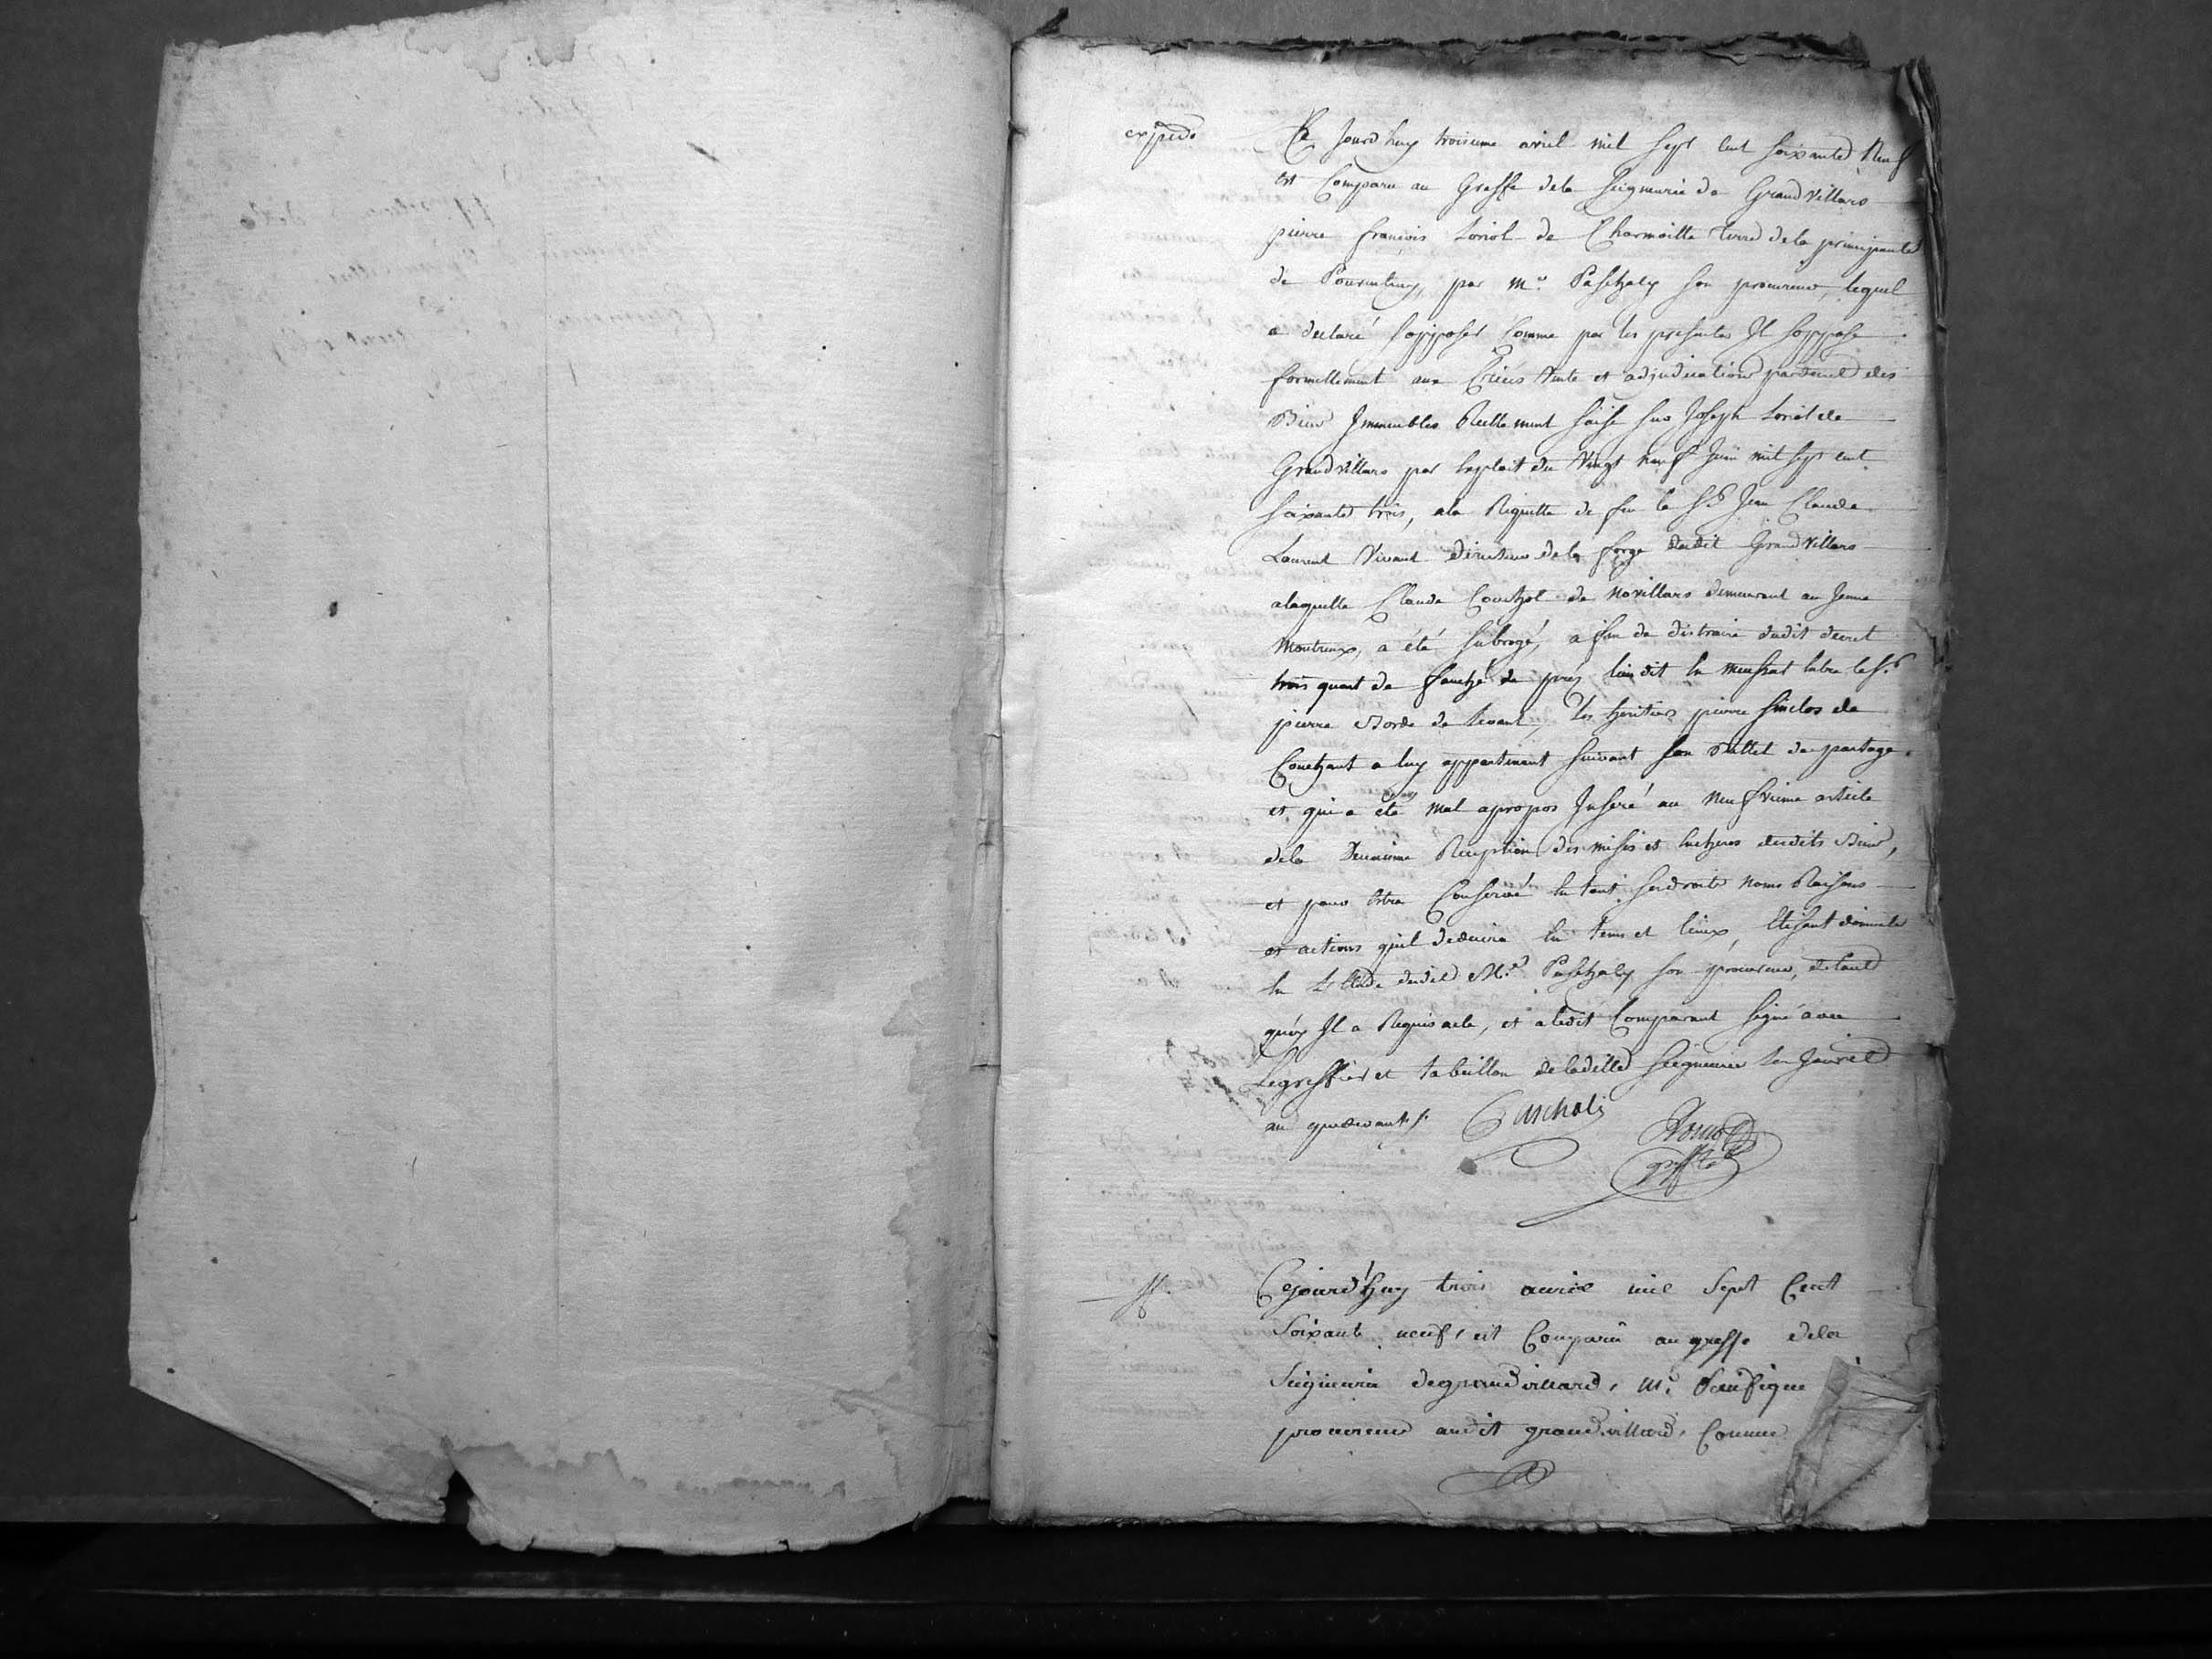 expedé
Ce Jourd huy troisieme avril mil Sept Cent Soixante Neuf
est Comparu au Greffe dela Seigneurie de Grandvillars
pierre françois Loriol de Charmoille terre dela principauté
de Pourentruy, par Me. Paschaly son procureur, lequel
a declaré S'opposer Comme par les presentes Il s'oppose
formellement aux Criées Vente et adjudication par decret des
Biens Immeubles Reellement saisis sur Joseph Loriol de
Grandvillars par Exploit du Vingt neuf Juin mil sept cent
Soixante trois, ala Requette de feu le Sr. Jean Claude
Laurent Vivant directeur dela forge dudit Grandvillars
alaquelle Claude Couchol de Novillars demeurant au Jeune
Montreux, a été Subrogé, a fin de distraire dudit decret
trois quart de fauché de prés lieu dit En entre le Sr.
pierre Borde de levant, les heritiers pierre de
Couchant a luy appartenant suivant son Billet de partage
et qui a été mal apropos Inseré au Neufvieme article
dela Deuxieme Reception des mises et Encheres desdits Biens,
et pour Etre Conservé En tout ses droits Noms Raisons
et actions qu'il deduira En tems et lieux, Elisant domicile
En L'Etude dudit Me. Paschaly son procureur, de tout
quoy Il a Requis acte, et aledit Comparant Signé avec
Legreffier et tabellion de ladite Seigneurie Les Jour et
an quedevant /.
Paschali
greff.
Cejourd'huy trois avril mil Sept Cent
Soixante neuf, est Comparu au greffe dela
Seigneurie degrandvillard, Me.
procureur audit grandvillard, Comme